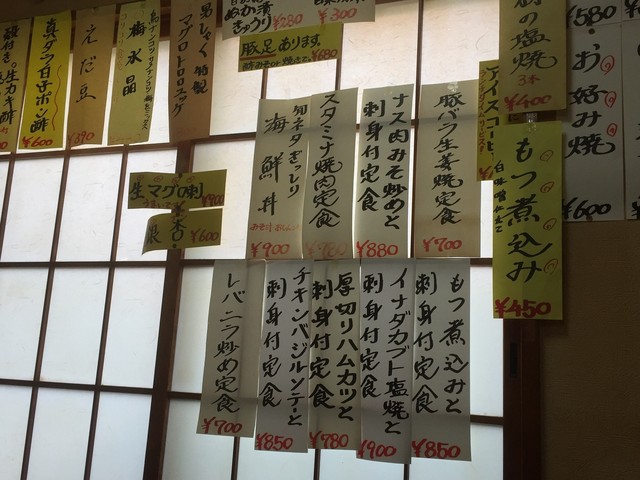 豚バラ生姜焼定食
¥700
ナス肉みそ炒めと
刺身付定食
¥880
スタミナ焼肉定食
¥980
旬ネタぎっしり
海鮮丼
みそ汁
¥900
もつ煮込みと
刺身付定食
¥850
イナダカブト塩焼と
刺身付定食
¥900
厚切りハムカツと
刺身付定食
¥780
チキンバジルソテーと
刺身付定食
¥850
レバニラ炒め定食
¥700
もつ煮込み
¥450
の塩焼
3本
¥400
アイスコーヒー
¥580
お好み焼
¥600
ぬか漬
きゅうり
¥280
¥300
豚足あります。
¥680
男しゃく特製
マグロトロユッケ
梅水晶
えだ豆
390
真ダラ白子ポン酢
¥600
殻付き。生カキ酢
生マグロ刺
¥900
¥600